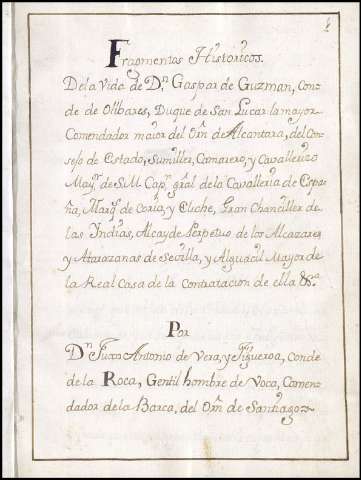 1
Fragmentos Historicos.
De la Vida de Dn. Gaspar de Guzman, Con
de de Olibares, Duque de San Lucar la mayor
Comendador maior del Orn de Alcantara, del Con
sejo de Estado, Sumiller, Camarero, y Cavallerizo
Mayr. de S.M. Capn. gral de la Cavalleria de Espa
ña, Marqs. de Coria, y Eliche, Gran Chanciller de
las Yndias, Alcayde Perpetuo de los Alcazares
y Atarazanas de Sevilla, y Alguacil Mayor de
la Real Casa de la Contratacion de ella &ca.
Por
Dn. Juan Antonio de Vera, y Figueroa, conde
de la Roca, Gentil hombre de Voca, Comen
dador de la Barca, del Orn de Santiago